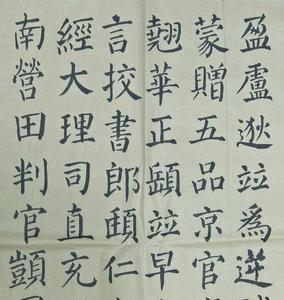 盈盧逖竝爲逆
蒙贈五品京官
翹華正頤竝早
言挍書郎頲仁
經大理司直充
南營田判官顗